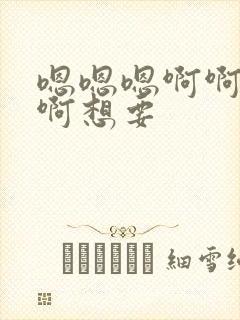 嗯嗯嗯啊啊
啊想要
细雪纷